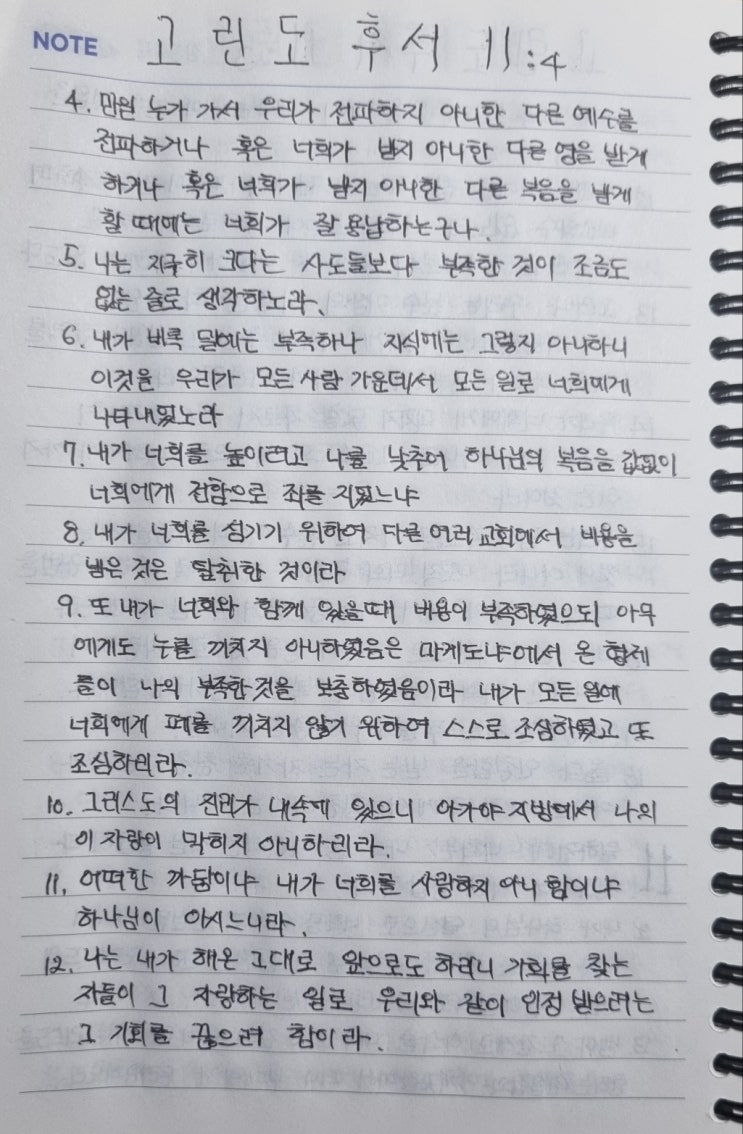 NOTE
고린도 후서 11:4
4. 만일 누가 가서 우리가 전파하지 아니한 다른 예수를
전파하거나 혹은 너희가 받지 아니한 다른 영을 받게
하거나 혹은 너희가 받지 아니한 다른 복음을 받게
할 때에는 너희가 잘 용납하는구나.
5. 나는 지극히 크다는 사도들보다 부족한 것이 조금도
없는 줄로 생각하노라.
6. 내가 비록 말에는 부족하나 지식에는 그렇지 아니하니
이것을 우리가 모든 사람 가운데서 모든 일로 너희에게
나타내었노라
7. 내가 너희를 높이려고 나를 낮추어 하나님의 복음을 값없이
너희에게 전함으로 죄를 지었느냐
8. 내가 너희를 섬기기 위하여 다른 여러 교회에서 비용을
받은 것은 탈취한 것이라
9. 또 내가 너희와 함께 있을때 비용이 부족하였으되 아무
에게도 누를 끼치지 아니하였음은 마게도냐에서 온 형제
들이 나의 부족한것을 보충하였음이라 내가 모든 일에
너희에게 폐를 끼치지 않기 위하여 스스로 조심하였고 또
조심하리라.
10. 그리스도의 진리가 내속에 있으니 아가야 지방에서 나의
이 자랑이 막히지 아니하리라.
11. 어떠한 까닭이냐 내가 너희를 사랑하지 아니함이냐
하나님이 아시느니라.
12. 나는 내가 해온 그대로 앞으로도 하리니 기회를 찾는
자들이 그 자랑하는 일로 우리와 같이 인정 받으려는
그 기회를 끊으려 함이라.